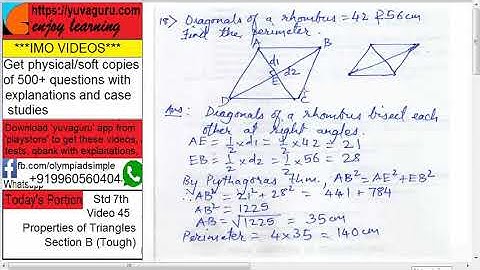 https://yuvaguru.com
enjoy learning
***IMO VIDEOS***
Get physical/soft copies
of 500+ questions with
explanations and case
studies
Download 'yuvaguru' app from
'playstore' to get these videos,
tests, qbank with explanations.
fb.com/olympiadsimple
Whatsapp
+919960560404
Today's Portion
Std 7th
Video 45
Properties of Triangles
Section B (Tough)
18) Diagonals of a rhombus = 42 & 56cm
Find the perimeter.
A B
d1
d2
E
D C
Ans: Diagonals of a rhombus bisect each
other at right angles.
AE = 1/2 × d1 = 1/2 × 42 = 21
EB = 1/2 × d2 = 1/2 × 56 = 28
By Pythagoras thm, AB² = AE² + EB²
∴ AB² = 21² + 28² = 441 + 784
AB² = 1225
AB = √1225 = 35cm
Perimeter = 4×35 = 140cm